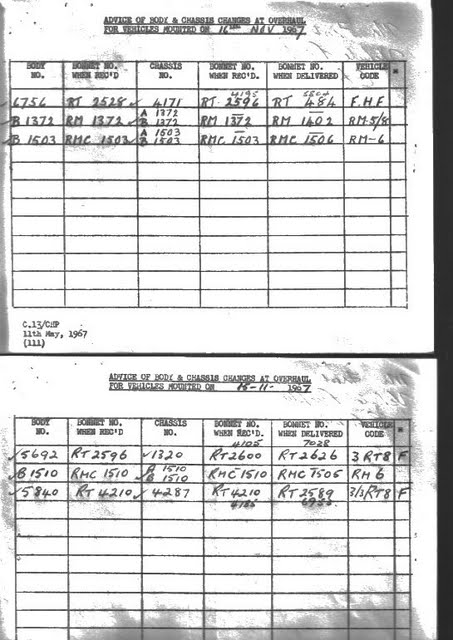 ADVICE OF BODY & CHASSIS CHANGES AT OVERHAUL
FOR VEHICLES MOUNTED ON 16 NOV 1967
BODY NO. BONNET NO. WHEN REC'D CHASSIS NO. BONNET NO. WHEN REC'D. BONNET NO. WHEN DELIVERED VEHICLE CODE *
4195
6756 RT 2528 4171 RT 2596 RT 484 F.H.F
A 1372
B 1372 RM 1372 B 1372 RM 1372 RM 1402 RM-5/8
A 1503
B 1503 RMC 1503 B 1503 RMC 1503 RMC 1506 RM-6
C.13/CHP
11th May, 1967
(111)
ADVICE OF BODY & CHASSIS CHANGES AT OVERHAUL
FOR VEHICLES MOUNTED ON 15-11- 1967
BODY NO. BONNET NO. WHEN REC'D CHASSIS NO. BONNET NO. WHEN REC'D. BONNET NO. WHEN DELIVERED VEHICLE CODE *
7028
5692 RT2596 1320 RT2600 RT2626 3RT8 F
A 1510
B 1510 RMC 1510 B 1510 RMC 1510 RMC 1505 RM 6
5840 RT 4210 4287 RT 4210 RT 2589 3/3RT8 F